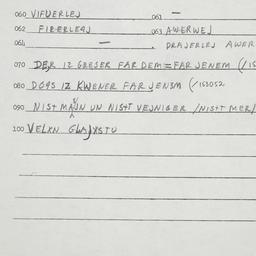 060 VIFVERLEJ 061 —
062 FIRERLE4J 063 AWERWEJ
064 — . DRAJERLEJ AWER
070 DER IZ GRESER FAR DEM = FAR JENEM (/15
080 DO4S IZ KWENER FAR JEN3M (/153052
090 NIST MAJN UN NIST VEJNIGER /NIST MER/
100 VELXN GLAJXSTU